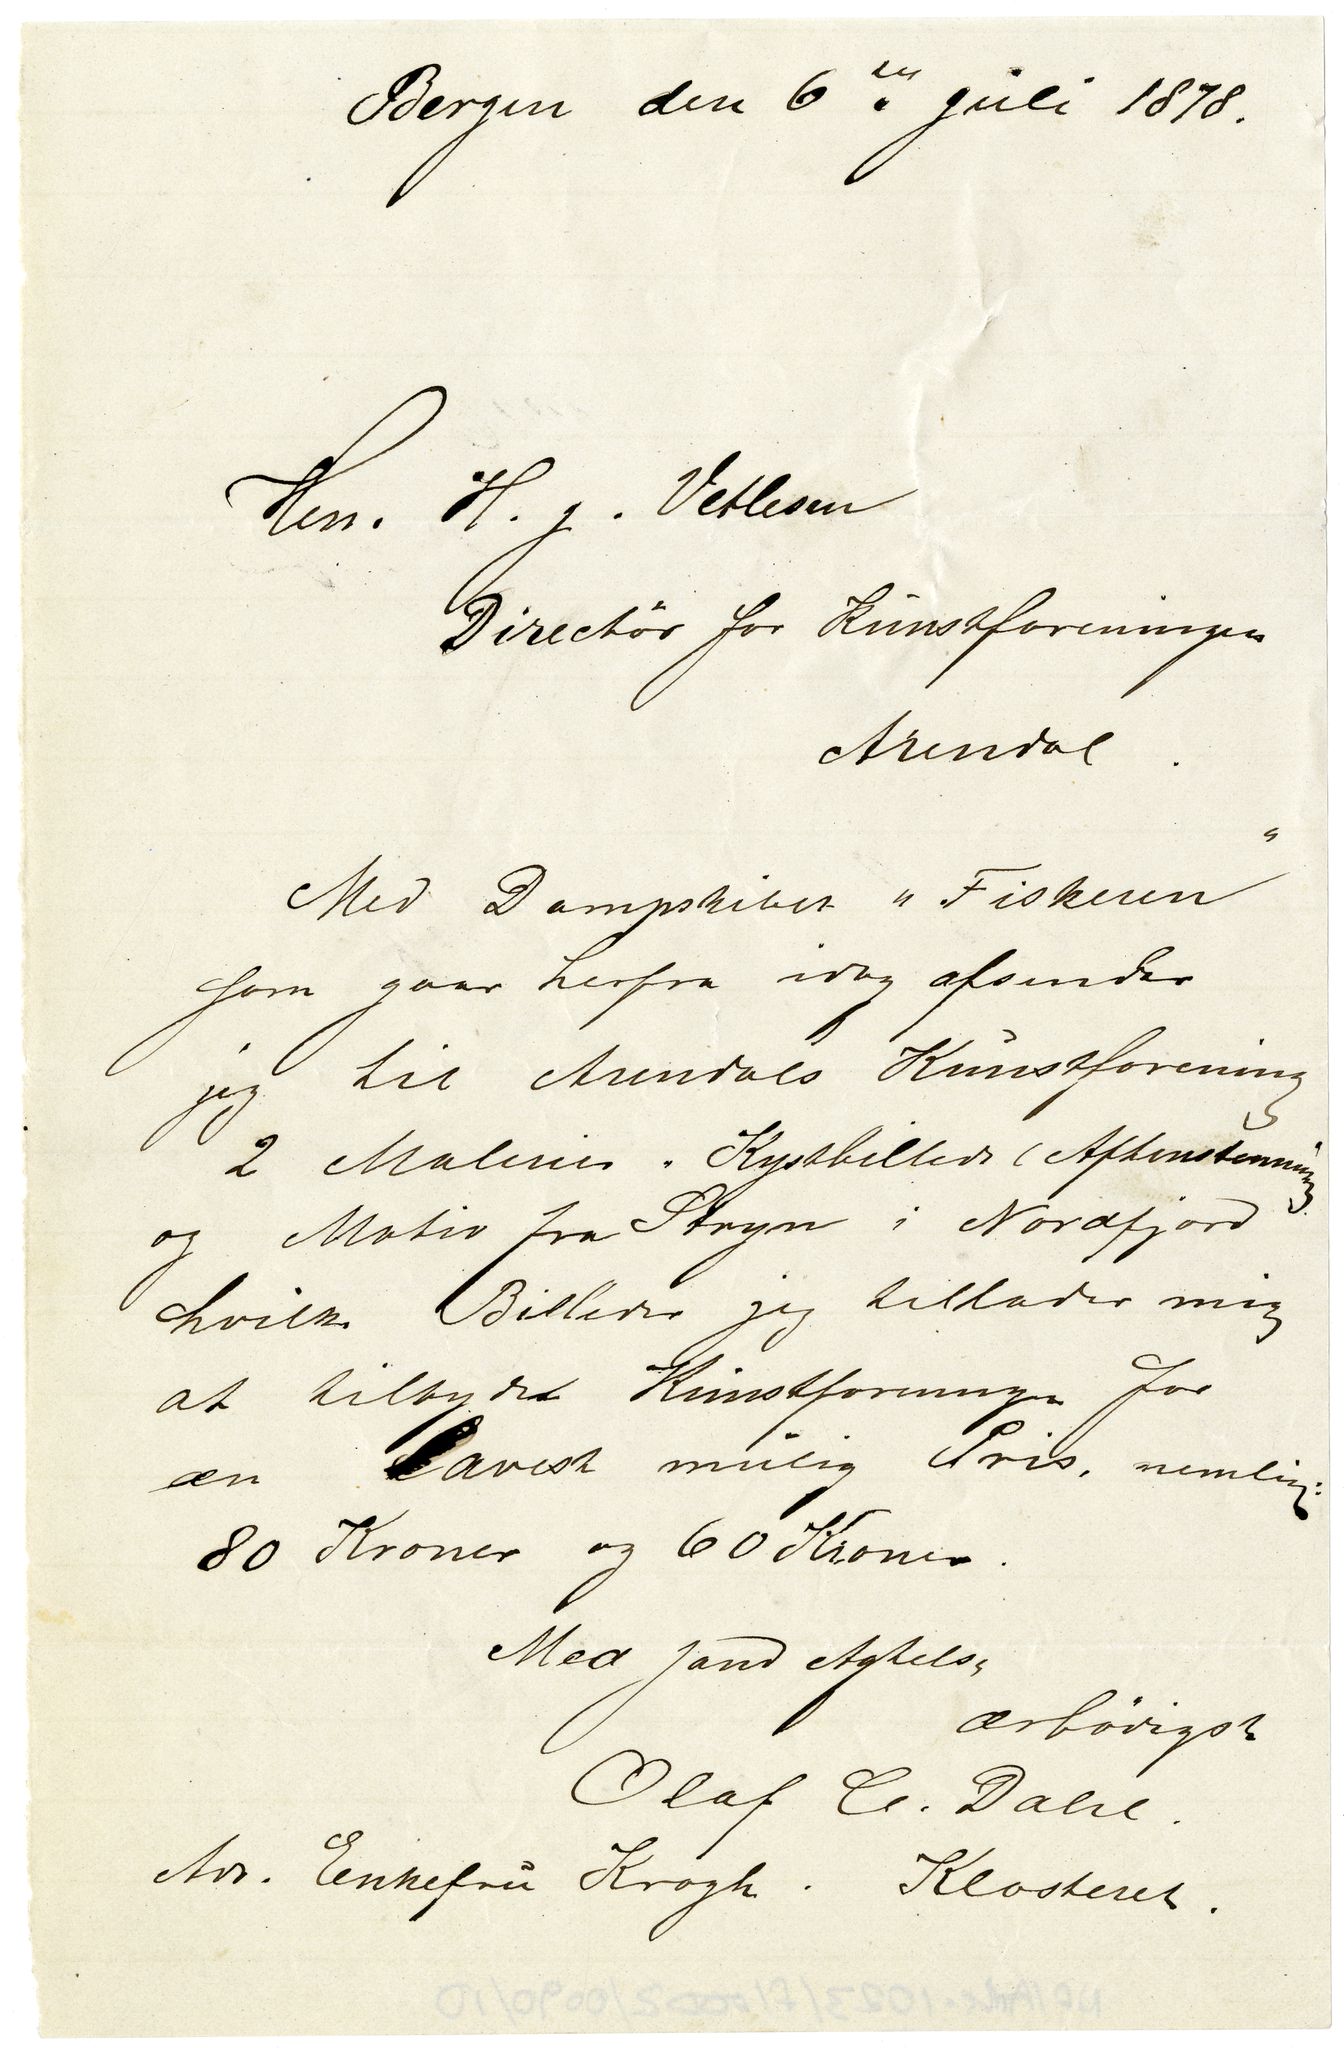 Bergen den 6ten Juli 1878.
Herr. H. J. Vetlesen
Directör for Kunstforeningen
Arendal.
Med Dampskibet "Fiskeren"
som gaar herfra idag afsender
jeg til Arendals Kunstforening
2 Malerier. Kystbillede (Aftenstemning)
og Motiv fra Stryn i Nordfjord
hvilke Billeder jeg tillader mig
at tilbyde Kunstforeningen for
en Lavest mulig Pris, nemlig:
80 Kroner og 60 Kroner.
Med sand Agtelse
ærbödigst
Olaf C. Dahl.
Adr. Enkefru Krogh. Klosteret.